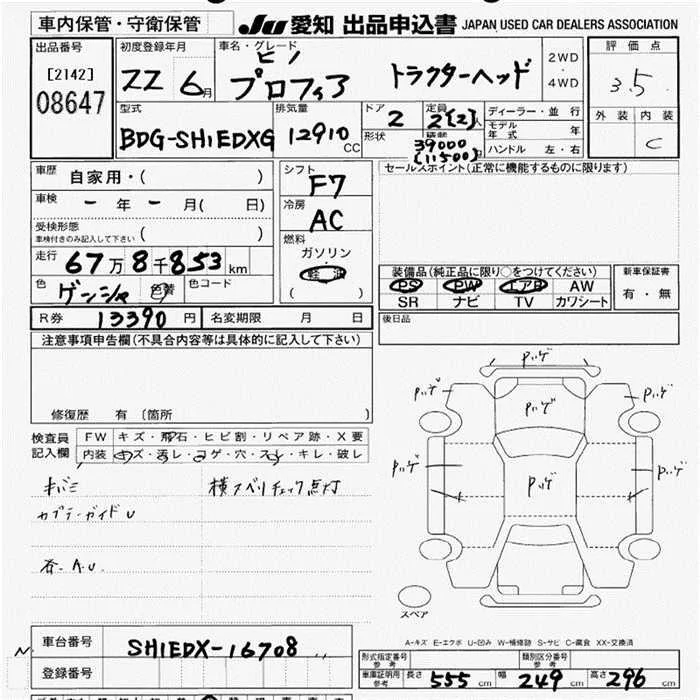 車内保管・守衛保管 JU 愛知 出品申込書 JAPAN USED CAR DEALERS ASSOCIATION
出品番号 初度登録年月 車名・グレード 評価点
[2142] 22 6月 ヒノ プロフィア トラクターヘッド 2WD・4WD 3.5
08647
型式 排気量 ドア 2 定員 2{2}人 ディーラー・並行 外装 内装
BDG-SH1EDXG 12910 CC 形状 積載 39000 {11500} モデル年式 年 C
ハンドル 左・右
車歴 自家用・( ) シフト F7 セールスポイント(正常に機能するものに限ります)
車検 ー年ー月( 日) 冷房 AC
受検形態 ( )
車検付きのみ記入して下さい
燃料 ガソリン・軽油 ( )
走行 67万8千853km
色 ゲンシャ 色替 色コード
装備品(純正品に限り○をつけてください) 新車保証書
PS PW エアB AW 有・無
SR ナビ TV カワシート
R券 13390円 名変期限 月 日 後日品
注意事項申告欄(不具合内容等は具体的に記入して下さい)
修復歴 有〔箇所 〕
検査員記入欄 FW キズ・飛石・ヒビ割・リペア跡・X要
内装 キズ・汚レ・コゲ・穴・スレ・キレ・破レ
キバミ 横スベリチェック点灯
カプラーガイドU
各.A.U.
Pハゲ
Pハゲ Pハゲ Pハゲ
Pハゲ Pハゲ Pハゲ
スペア
A-キズ E-エクボ U-凹み W-補修跡 S-サビ C-腐食 XX-交換済
車台番号 SH1EDX-16708
登録番号
形式指定番号 参考 類別区分番号 参考
車庫証明用 参考 長さ 555cm 幅 249cm 高さ 296cm